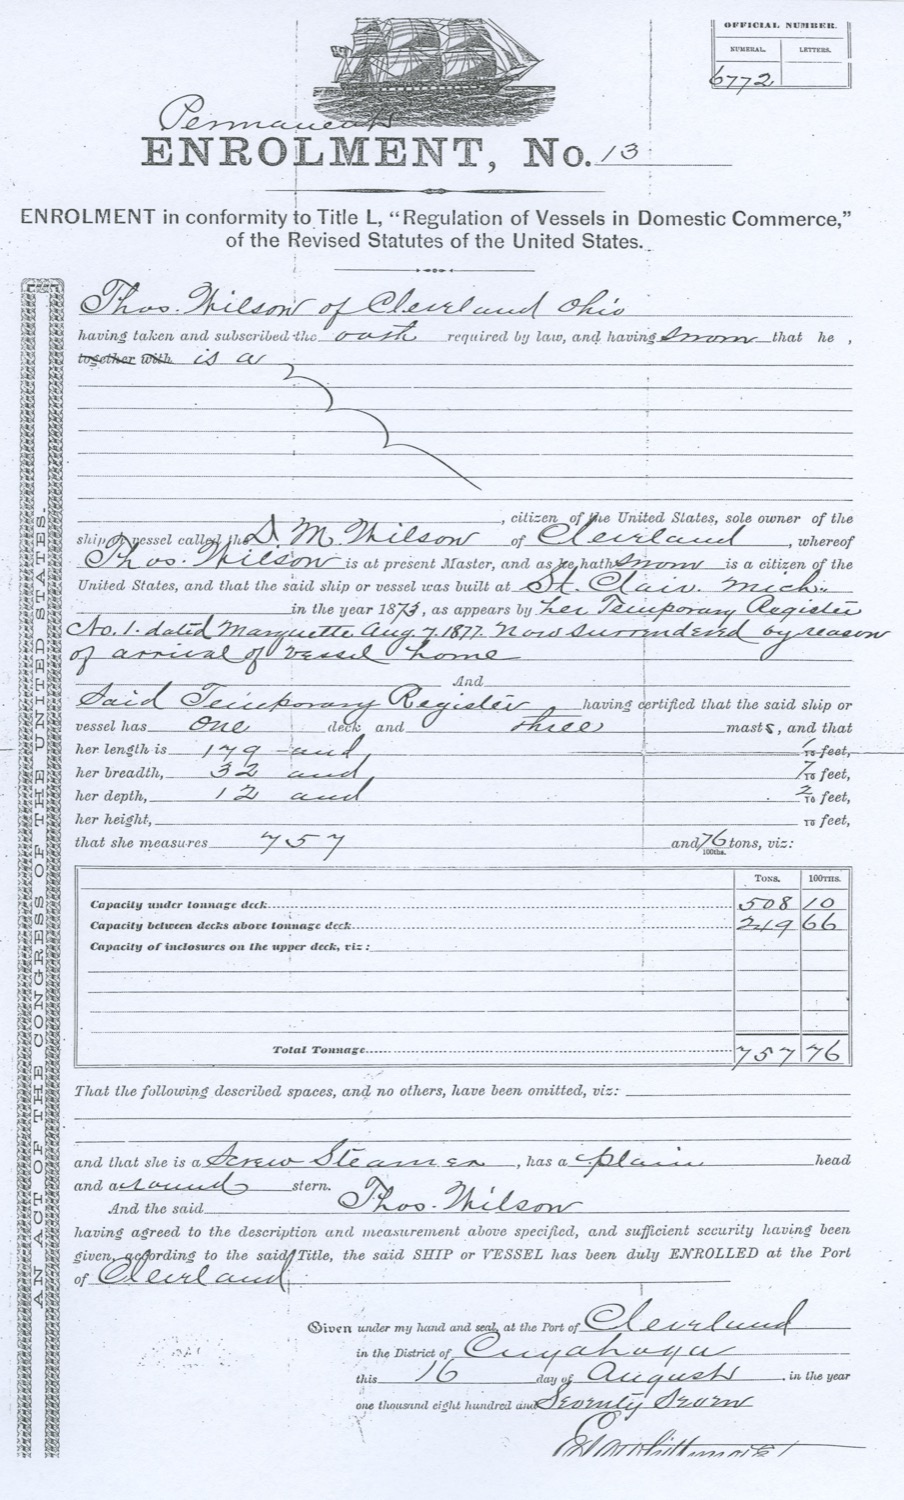 OFFICIAL NUMBER.
NUMERAL. LETTERS.
6772
Permanent
ENROLMENT, No. 13
ENROLMENT in conformity to Title L, “Regulation of Vessels in Domestic Commerce,”
of the Revised Statutes of the United States.
AN ACT OF THE CONGRESS OF THE UNITED STATES.
Thos. Wilson of Cleveland Ohio
having taken and subscribed the oath required by law, and having sworn that he ,
together with is a
, citizen of the United States, sole owner of the
ship or vessel called the D M Wilson of Cleveland , whereof
Thos. Wilson is at present Master, and as he hath sworn is a citizen of the
United States, and that the said ship or vessel was built at St. Clair. Mich.
in the year 1873, as appears by her Temporary Register
No. 1. dated Marquette Aug. 7. 1877. Now surrendered by reason
of arrival of vessel home
And
Said Temporary Register having certified that the said ship or
vessel has one deck and three masts, and that
her length is 179 and 1/10 feet,
her breadth, 32 and 7/10 feet,
her depth, 12 and 2/10 feet,
her height, 10 feet,
that she measures 757 and 76 100ths. tons, viz:
TONS. 100THS.
Capacity under tonnage deck 508 10
Capacity between decks above tonnage deck 249 66
Capacity of inclosures on the upper deck, viz:
Total Tonnage 757 76
That the following described spaces, and no others, have been omitted, viz:
and that she is a Screw Steamer , has a plain head
and a round stern.
And the said Thos. Wilson
having agreed to the description and measurement above specified, and sufficient security having been
given, according to the said Title, the said SHIP or VESSEL has been duly ENROLLED at the Port
of Cleveland
Given under my hand and seal, at the Port of Cleveland
in the District of Cuyahoga
this 16 day of August , in the year
one thousand eight hundred and Seventy Seven